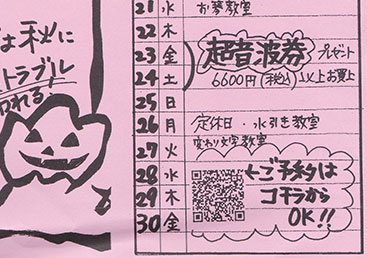 は秋に
トラブル
われる
21 水 お箏教室
22 木
23 金 超音波券 プレゼント
24 土 6600円(税込)以上お買上
25 日
26 月 定休日・水引き教室
27 火 変わり文字教室
28 水 ←ご予約は
29 木 コチラから
30 金 OK!!